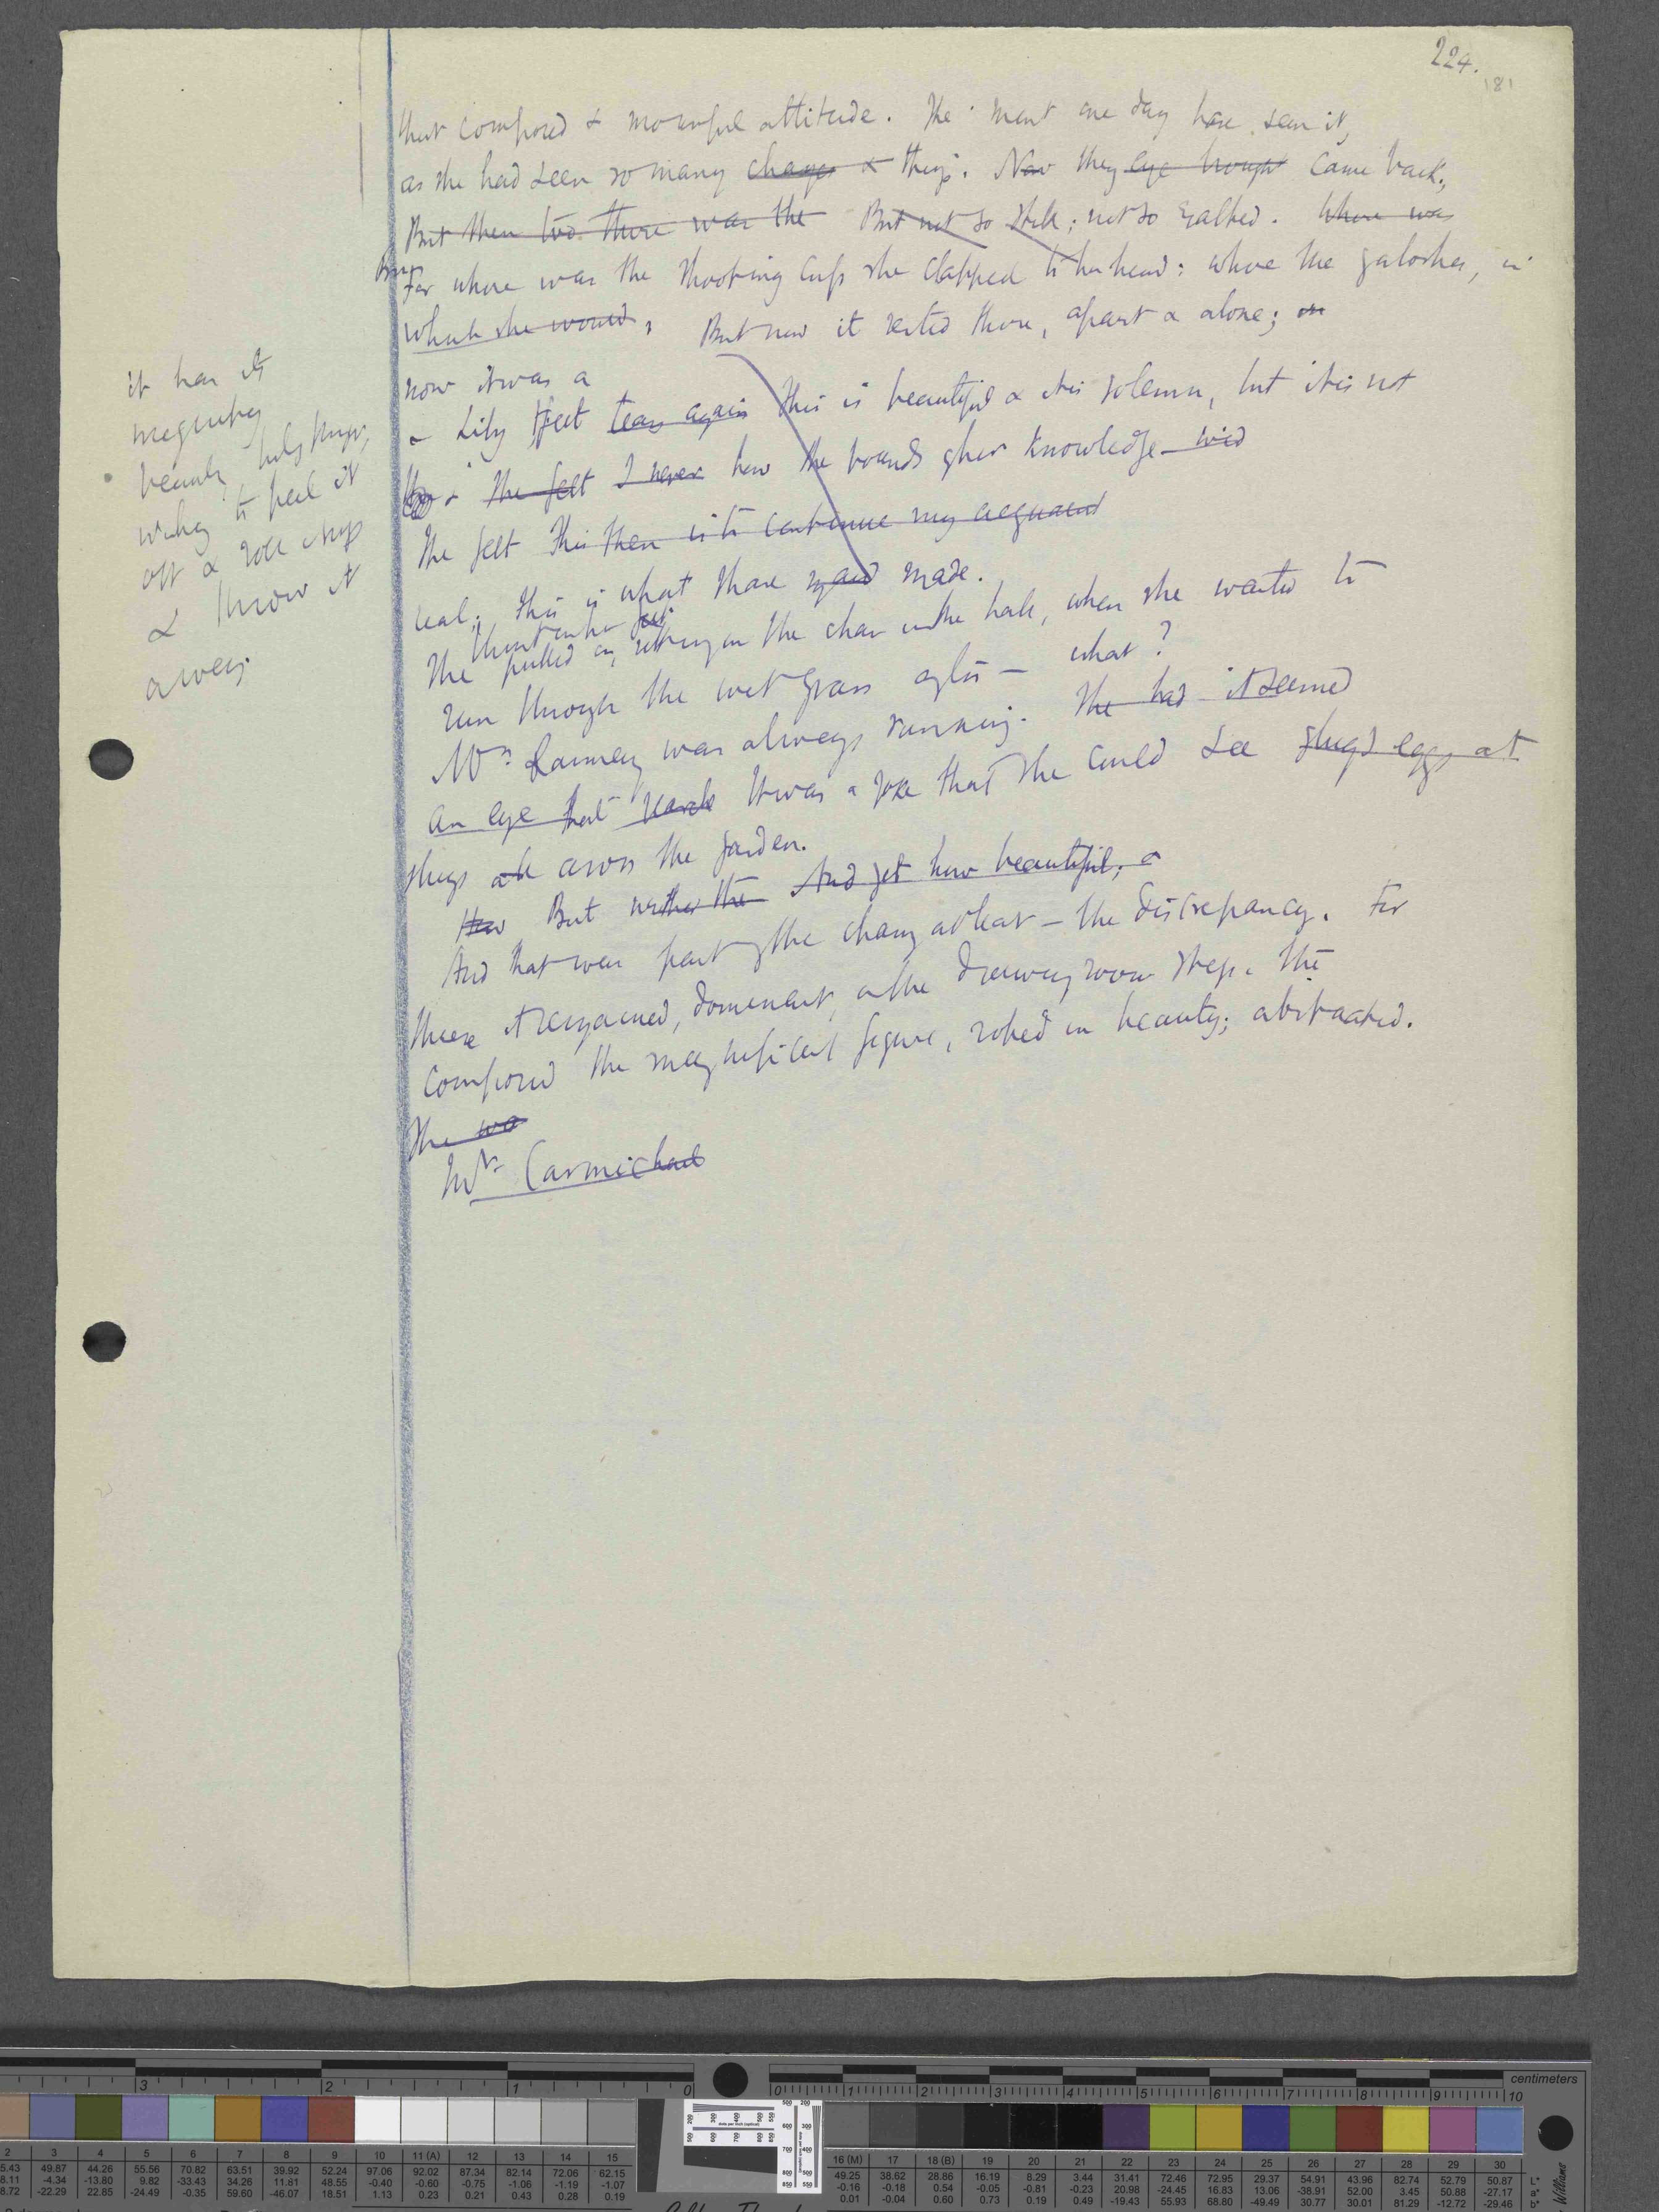 224.
181
that composed & mournful attitude. She must one day have seen it,
as she had seen so many changes & things. Now they eye brought came back.,
But then too there was the But not so still; not so exalted. Where was
But
For where was the shooting cap she clapped to her head: where the galoshes, in
which she would, But now it rested there, apart & alone; on
now it was a
& Lily felt tears again this is beautiful & it is solemn, but it is not
& She felt I never how the bounds of her knowledge
She felt This then is to continue my acquaint
real; this is what I have made.
thrust on her feet
She pulled on, sitting on the chair in the hall, when she wanted to
run through the wet grass after — what?
Mrs Ramsay was always running. She had it seemed
an eye that It was a joke that she could see slugs eggs at
slugs all across the garden.
How But the And yet how beautiful, &
And that was part of the charm at least – the discrepancy. For
there it remained, dominant, on the drawing room step. the
composed the magnificent figure, robed in beauty; abstracted.
She wo
Mr Carmichael
it has its
beauty
to peel it
off & roll it up
& throw it
away.
centimeters